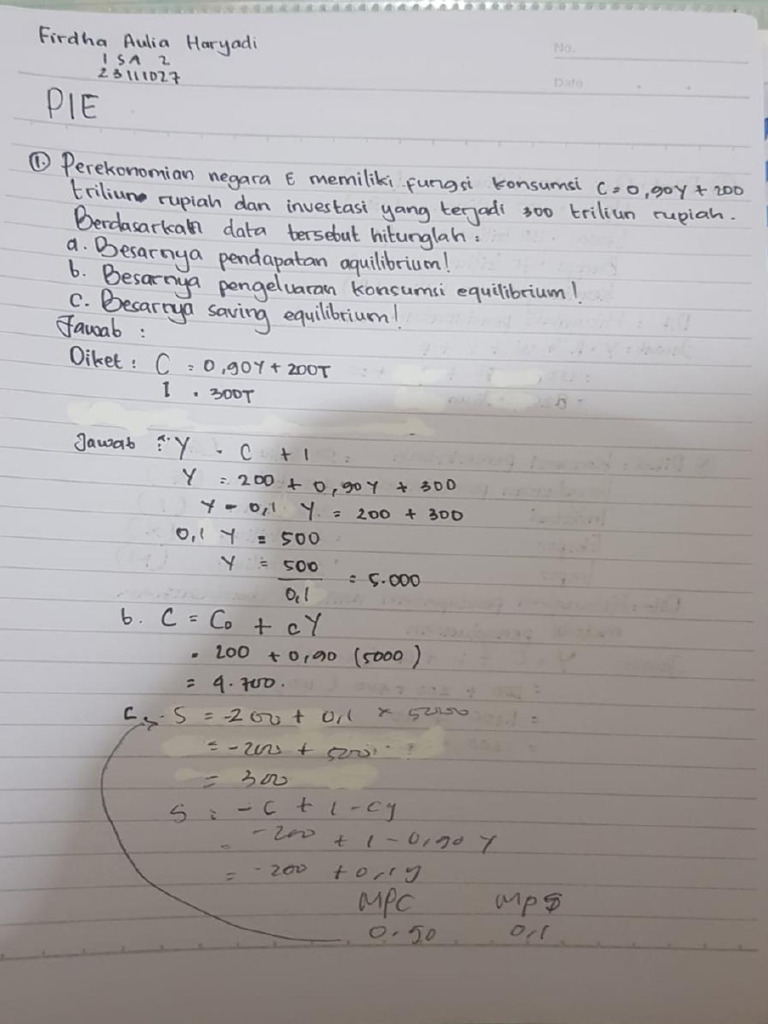 Firdha Aulia Haryadi
1 SA 2
23111027
No.
Date
PIE
① Perekonomian negara E memiliki fungsi konsumsi C = 0,90Y + 200
triliun rupiah dan investasi yang terjadi 300 triliun rupiah.
Berdasarkan data tersebut hitunglah :
a. Besarnya pendapatan aquilibrium!
b. Besarnya pengeluaran konsumsi equilibrium!
c. Besarnya saving equilibrium!
Jawab :
Diket : C = 0,90Y + 200T
I = 300T
Jawab : Y = C + I
Y = 200 + 0,90Y + 300
Y - 0,1 Y = 200 + 300
0,1 Y = 500
Y = 500
0,1
= 5.000
b. C = C₀ + cY
= 200 + 0,90 (5000)
= 4.700.
C. S = -200 + 0,1 × 5000
= -200 + 500
= 300
S = -C + 1 - cy
= -200 + 1 - 0,90 Y
= -200 + 0,1y
MPC MPS
0.90 0,1